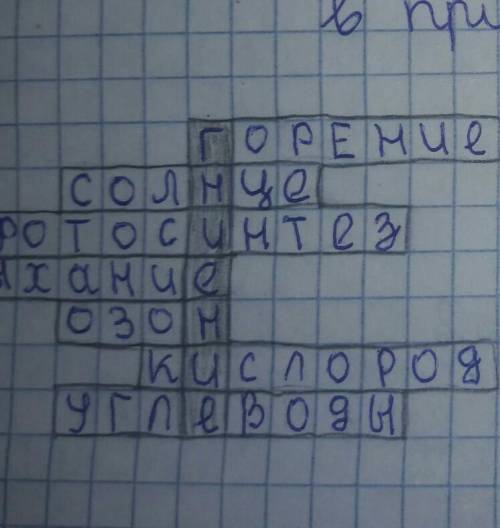 в при
горение
солнце
фотосинтез
ыхание
озон
кислород
углеводы